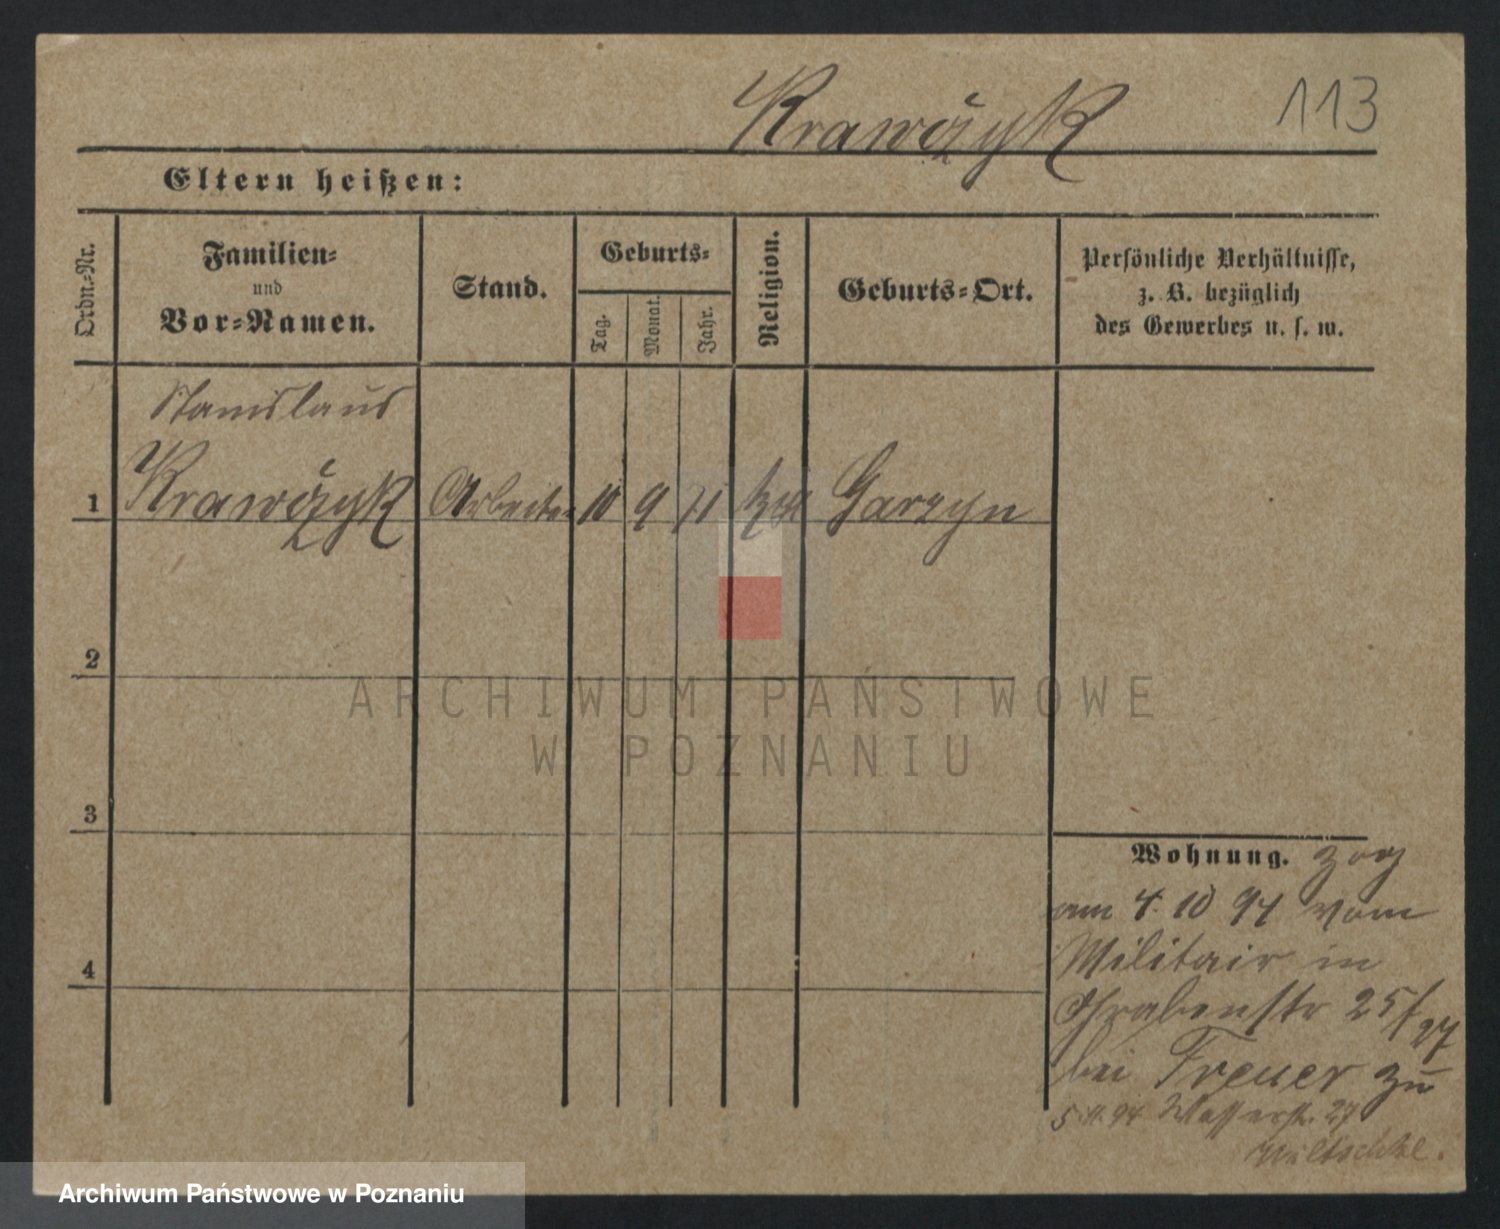 Krawczyk 113
Eltern heißen:
Ordn.-Nr.
Familien-
und
Vor-Namen.
Stand.
Geburts-
Tag.
Monat.
Jahr.
Religion.
Geburts-Ort.
Persönliche Verhältnisse,
z. B. bezüglich
des Gewerbes u. s. w.
Stanislaus
1 Krawczyk Arbeiter 10 9 71 kth Garzyn
2
3
4
Wohnung. zog
am 4. 10 94 vom
Militair in
Grabenstr 25/27
bei Treuer zu
5. 11. 94 Wasserstr. 27
ARCHIWUM PAŃSTWOWE
W POZNANIU
Archiwum Państwowe w Poznaniu